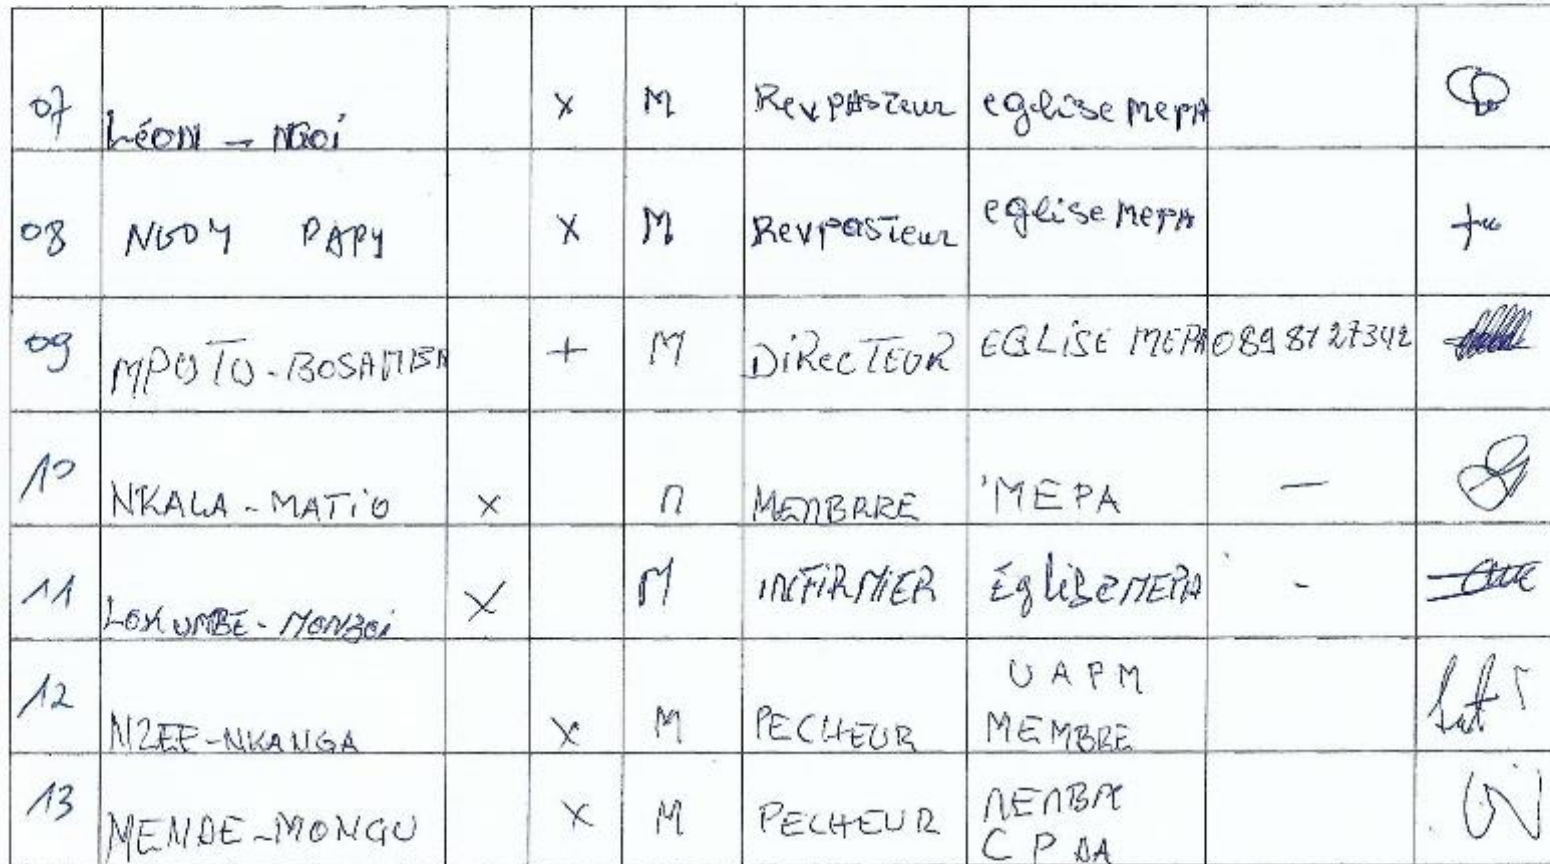 07 Léon - NGOi x M Rev PASTeur eglise MEPA
08 NGOY PAPY x M Rev pasTeur eglise MEPA
09 MPOTO-BOSAMBA + M DiRECTEUR EGLiSE MEPA 0898127342
10 NKALA - MATiO x M MEMBRRE MEPA —
11 LOKUMBE - MONZOi x M INFiRMIER Église MEPA -
12 NZEE-NKANGA x M PECHEUR UAPM
MEMBRE
13 MENDE-MONGU x M PECHEUR MEMBRE